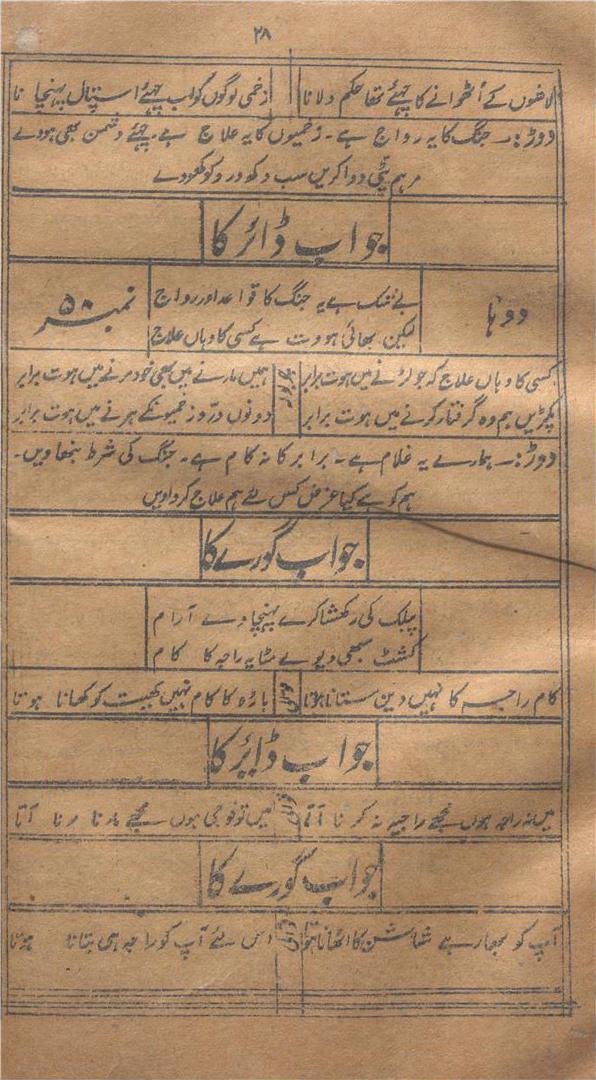 ۲۸
لاشوں کے اُٹھوانے کا چہئے تھا حکم دلانا زخمی لوگوں کو اب چہئے اسپتال پہنچانا
دوڑ:۔ جنگ کا یہ رواج ہے۔ زخمیوں کا یہ علاج ہے۔ چہئے دشمن بھی ہووے
مرہم پٹی دوا کریں سب دکھ درد کو کھووے
جواب ڈائر کا
دوہا بے شک ہے یہ جنگ کا قواعد اور رواج نمبر ۵۸
لیکن بھائی ہووت ہے کسی کا وہاں علاج
کسی کا وہاں علاج کہ جو لڑنے میں ہوت برابر چوبولہ ہمیں مارنے میں بھی خود مرنے میں ہوت برابر
پکڑیں ہم وہ گرفتار کرنے میں ہوت برابر دونوں درّ و زخمیونکے ہرنے میں ہوت برابر
دوڑ:۔ ہمارے یہ غلام ہے۔ برابر کا نہ کام ہے۔ جنگ کی شرط نبھاویں۔
ہم کو ہے کیا غرض کس لئے ہم علاج کرواویں
جواب گورے کا
پبلک کی رکھشا کرے پہنچاوے آرام
کشٹ سبھی دیوے مٹا یہ راجہ کا کام
کام راجہ کا نہیں دین ستانا ہوتا باڑہ کا کام نہیں کھیت کو کھانا ہوتا
جواب ڈائر کا
میں نہ راجہ ہوں مجھے راجیہ نہ کرنا آتا قوالی میں تو فوجی ہوں مجھے مارنا مرنا آتا
جواب گورے کا
آپ کو بھار ہے شاشن کا اٹھانا ہوتا قوالی اس لئے آپ کو راجہ ہی بتانا ہوتا